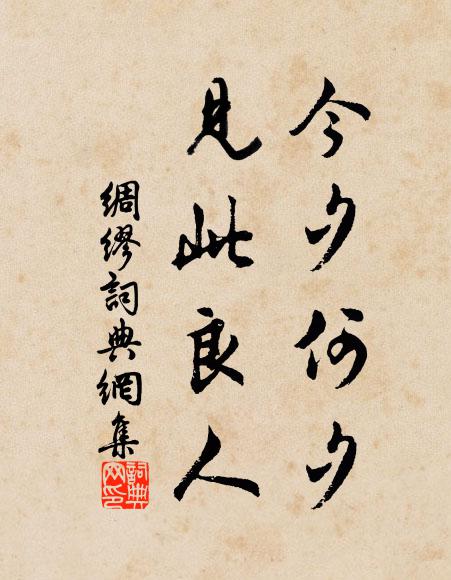 今夕何夕
見此良人
綢繆詞典網集
詞典
网印